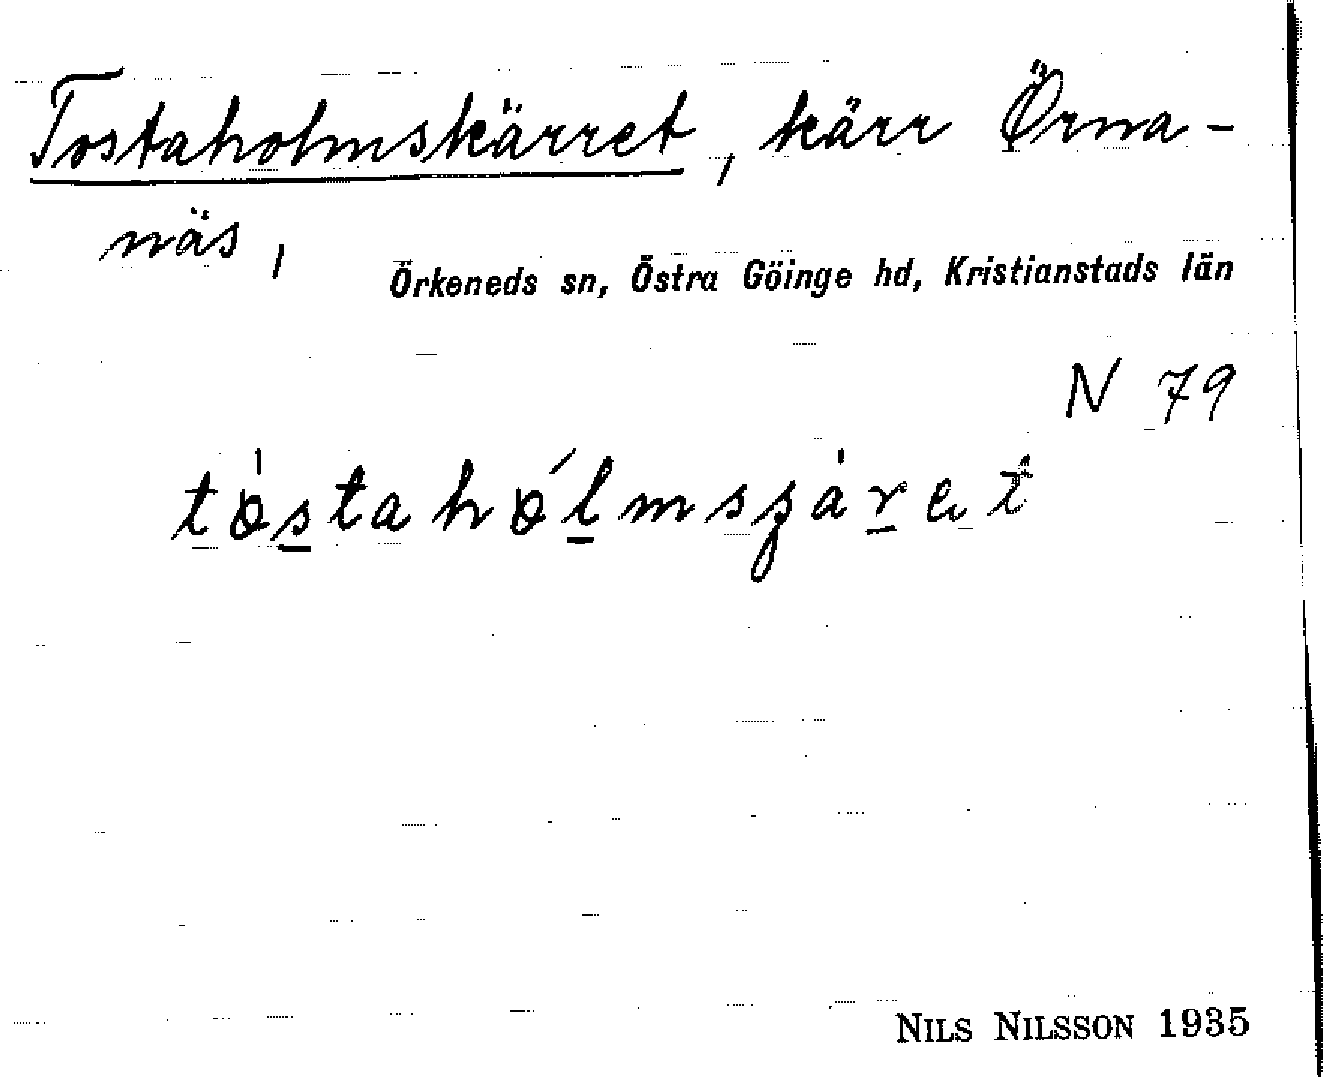 Tostaholmskärret, kärr Örna-
näs,
Örkeneds sn, Östra Göinge hd, Kristianstads län
N 79
tòstahólmsʂàret
NILS NILSSON 1935